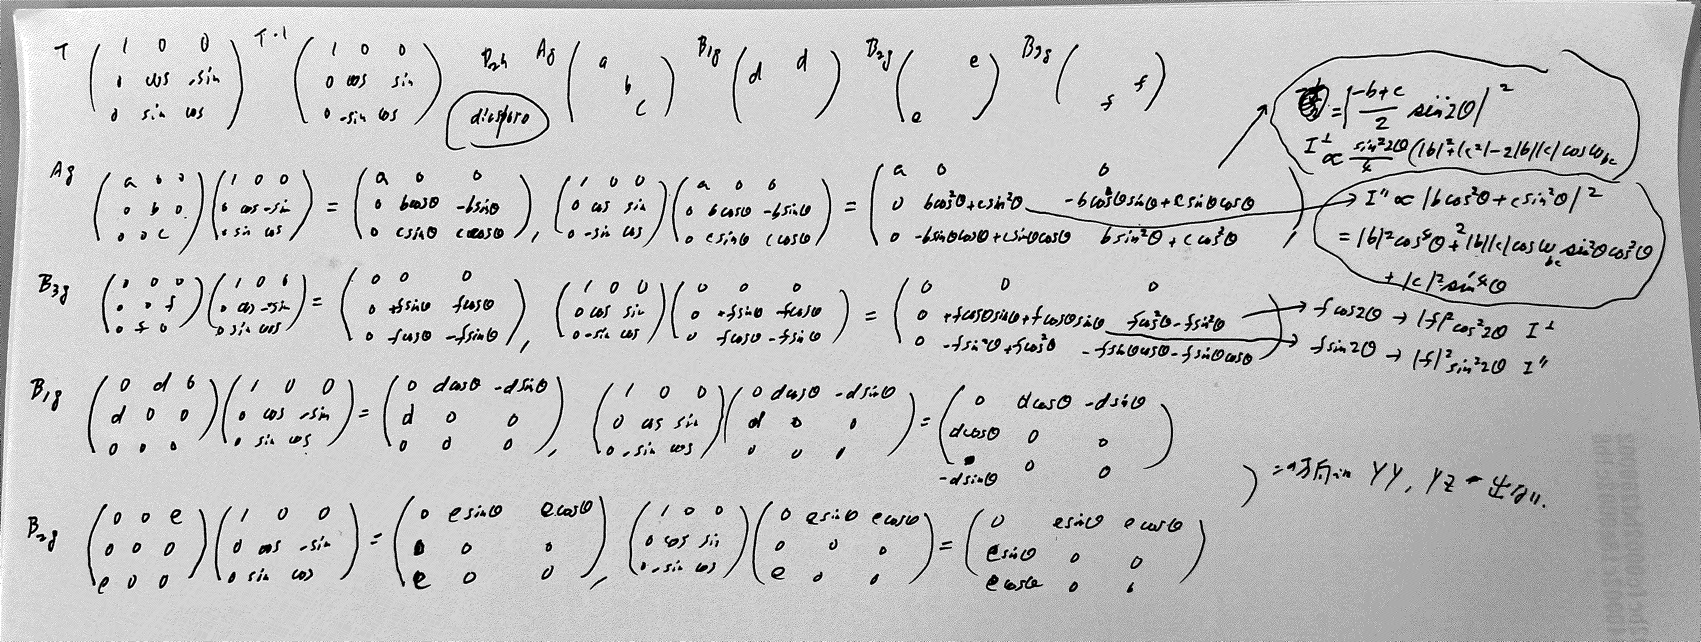 T ( 1 0 0 / 0 cos -sin / 0 sin cos ) T-1 ( 1 0 0 / 0 cos sin / 0 -sin cos ) D2h Ag ( a / b / c ) B1g ( d / d ) B2g ( e / e ) B3g ( f / f )
= | (-b+c)/2 sin2θ |²
I⊥ ∝ sin²2θ/4 (|b|²+|c²|-2|b||c|cosω bc
Ag ( a 0 0 / 0 b 0 / 0 0 c )( 1 0 0 / 0 cos -sin / 0 sin cos ) = ( a 0 0 / 0 bcosθ -bsinθ / 0 csinθ ccosθ ), ( 1 0 0 / 0 cos sin / 0 -sin cos )( a 0 0 / 0 bcosθ -bsinθ / 0 csinθ ccosθ ) = ( a 0 0 / 0 bcos²θ+csin²θ -bcosθsinθ+csinθcosθ / 0 -bsinθcosθ+csinθcosθ bsin²θ+ccos²θ )
→ I" ∝ |bcos²θ+csin²θ|²
= |b|²cos⁴θ+2|b||c|cosω bc sin²θcos²θ
+|c|²sin⁴θ
B3g ( 0 0 0 / 0 0 f / 0 f 0 )( 1 0 0 / 0 cos -sin / 0 sin cos ) = ( 0 0 0 / 0 +fsinθ fcosθ / 0 fcosθ -fsinθ ), ( 1 0 0 / 0 cos sin / 0 -sin cos )( 0 0 0 / 0 +fsinθ fcosθ / 0 fcosθ -fsinθ ) = ( 0 0 0 / 0 +fcosθsinθ+fcosθsinθ fcos²θ-fsin²θ / 0 -fsin²θ+fcos²θ -fsinθcosθ-fsinθcosθ )
→ fcos2θ → |f|²cos²2θ I⊥
→ fsin2θ → |f|²sin²2θ I"
B1g ( 0 d 0 / d 0 0 / 0 0 0 )( 1 0 0 / 0 cos -sin / 0 sin cos ) = ( 0 dcosθ -dsinθ / d 0 0 / 0 0 0 ), ( 1 0 0 / 0 cos sin / 0 -sin cos )( 0 dcosθ -dsinθ / d 0 0 / 0 0 0 ) = ( 0 dcosθ -dsinθ / dcosθ 0 0 / -dsinθ 0 0 )
YY, YZ
B2g ( 0 0 e / 0 0 0 / e 0 0 )( 1 0 0 / 0 cos -sin / 0 sin cos ) = ( 0 esinθ ecosθ / 0 0 0 / e 0 0 ), ( 1 0 0 / 0 cos sin / 0 -sin cos )( 0 esinθ ecosθ / 0 0 0 / e 0 0 ) = ( 0 esinθ ecosθ / esinθ 0 0 / ecosθ 0 0 )